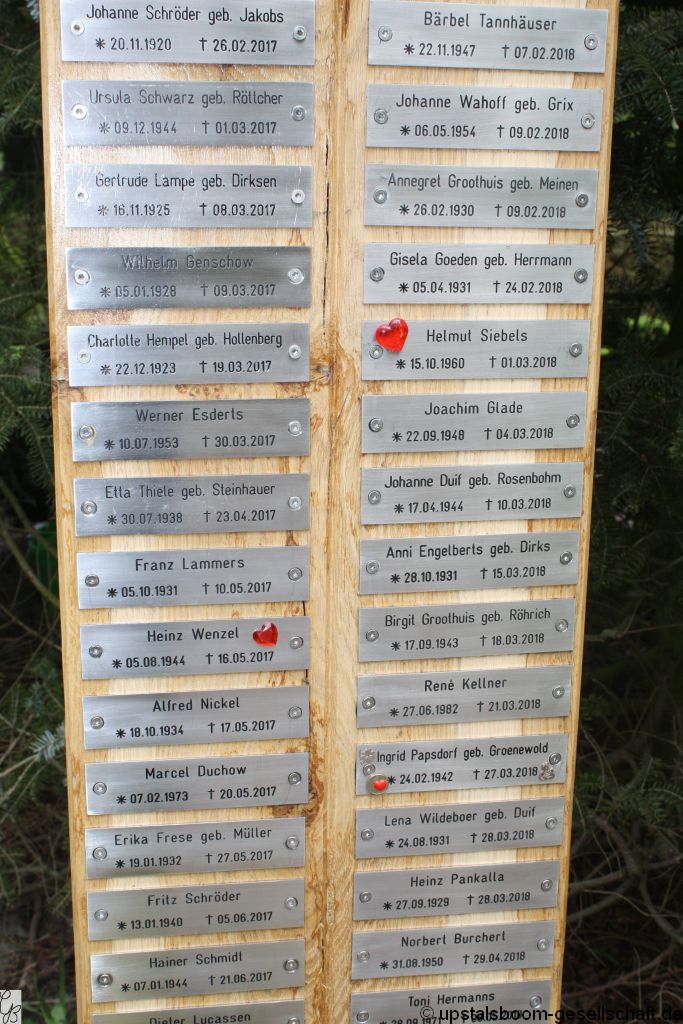 Johanne Schröder geb. Jakobs
* 20.11.1920 † 26.02.2017
Ursula Schwarz geb. Röttcher
* 09.12.1944 † 01.03.2017
Gertrude Lampe geb. Dirksen
* 16.11.1925 † 08.03.2017
Wilhelm Genschow
* 05.01.1928 † 09.03.2017
Charlotte Hempel geb. Hollenberg
* 22.12.1923 † 19.03.2017
Werner Esderts
* 10.07.1953 † 30.03.2017
Etta Thiele geb. Steinhauer
* 30.07.1938 † 23.04.2017
Franz Lammers
* 05.10.1931 † 10.05.2017
Heinz Wenzel
* 05.08.1944 † 16.05.2017
Alfred Nickel
* 18.10.1934 † 17.05.2017
Marcel Duchow
* 07.02.1973 † 20.05.2017
Erika Frese geb. Müller
* 19.01.1932 † 27.05.2017
Fritz Schröder
* 13.01.1940 † 05.06.2017
Hainer Schmidt
* 07.01.1944 † 21.06.2017
Dieter Lucassen
Bärbel Tannhäuser
* 22.11.1947 † 07.02.2018
Johanne Wahoff geb. Grix
* 06.05.1954 † 09.02.2018
Annegret Groothuis geb. Meinen
* 26.02.1930 † 09.02.2018
Gisela Goeden geb. Herrmann
* 05.04.1931 † 24.02.2018
Helmut Siebels
* 15.10.1960 † 01.03.2018
Joachim Glade
* 22.09.1948 † 04.03.2018
Johanne Duif geb. Rosenbohm
* 17.04.1944 † 10.03.2018
Anni Engelberts geb. Dirks
* 28.10.1931 † 15.03.2018
Birgit Groothuis geb. Röhrich
* 17.09.1943 † 18.03.2018
René Kellner
* 27.06.1982 † 21.03.2018
Ingrid Papsdorf geb. Groenewold
* 24.02.1942 † 27.03.2018
Lena Wildeboer geb. Duif
* 24.08.1931 † 28.03.2018
Heinz Pankalla
* 27.09.1929 † 28.03.2018
Norbert Burchert
* 31.08.1950 † 29.04.2018
Toni Hermanns
© upstalsboom-gesellschaft.de